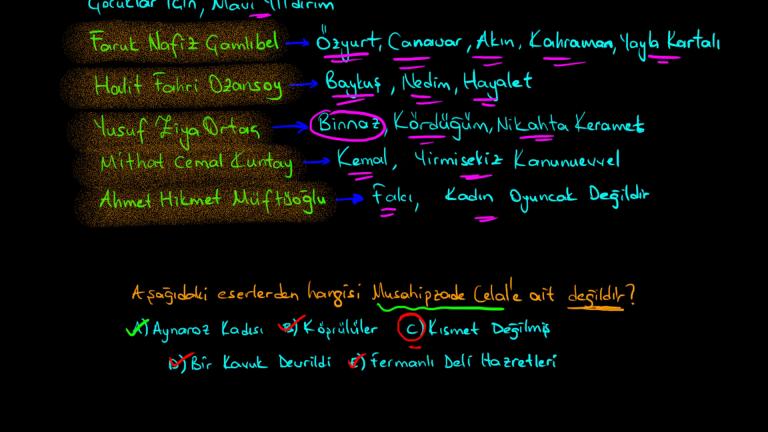 Çocuklar İçin, Mavi Yıldırım
Faruk Nafiz Çamlıbel → Özyurt, Canavar, Akın, Kahraman, Yayla Kartalı
Halit Fahri Ozansoy → Baykuş, Nedim, Hayalet
Yusuf Ziya Ortaç → Binnaz, Kördüğüm, Nikahta Keramet
Mithat Cemal Kuntay → Kemal, Yirmisekiz Kanunuevvel
Ahmet Hikmet Müftüoğlu → Falcı, Kadın Oyuncak Değildir
Aşağıdaki eserlerden hangisi Musahipzade Celal'e ait değildir?
A) Aynaroz Kadısı B) Köprülüler C) Kısmet Değilmiş
D) Bir Kavuk Devrildi E) Fermanlı Deli Hazretleri